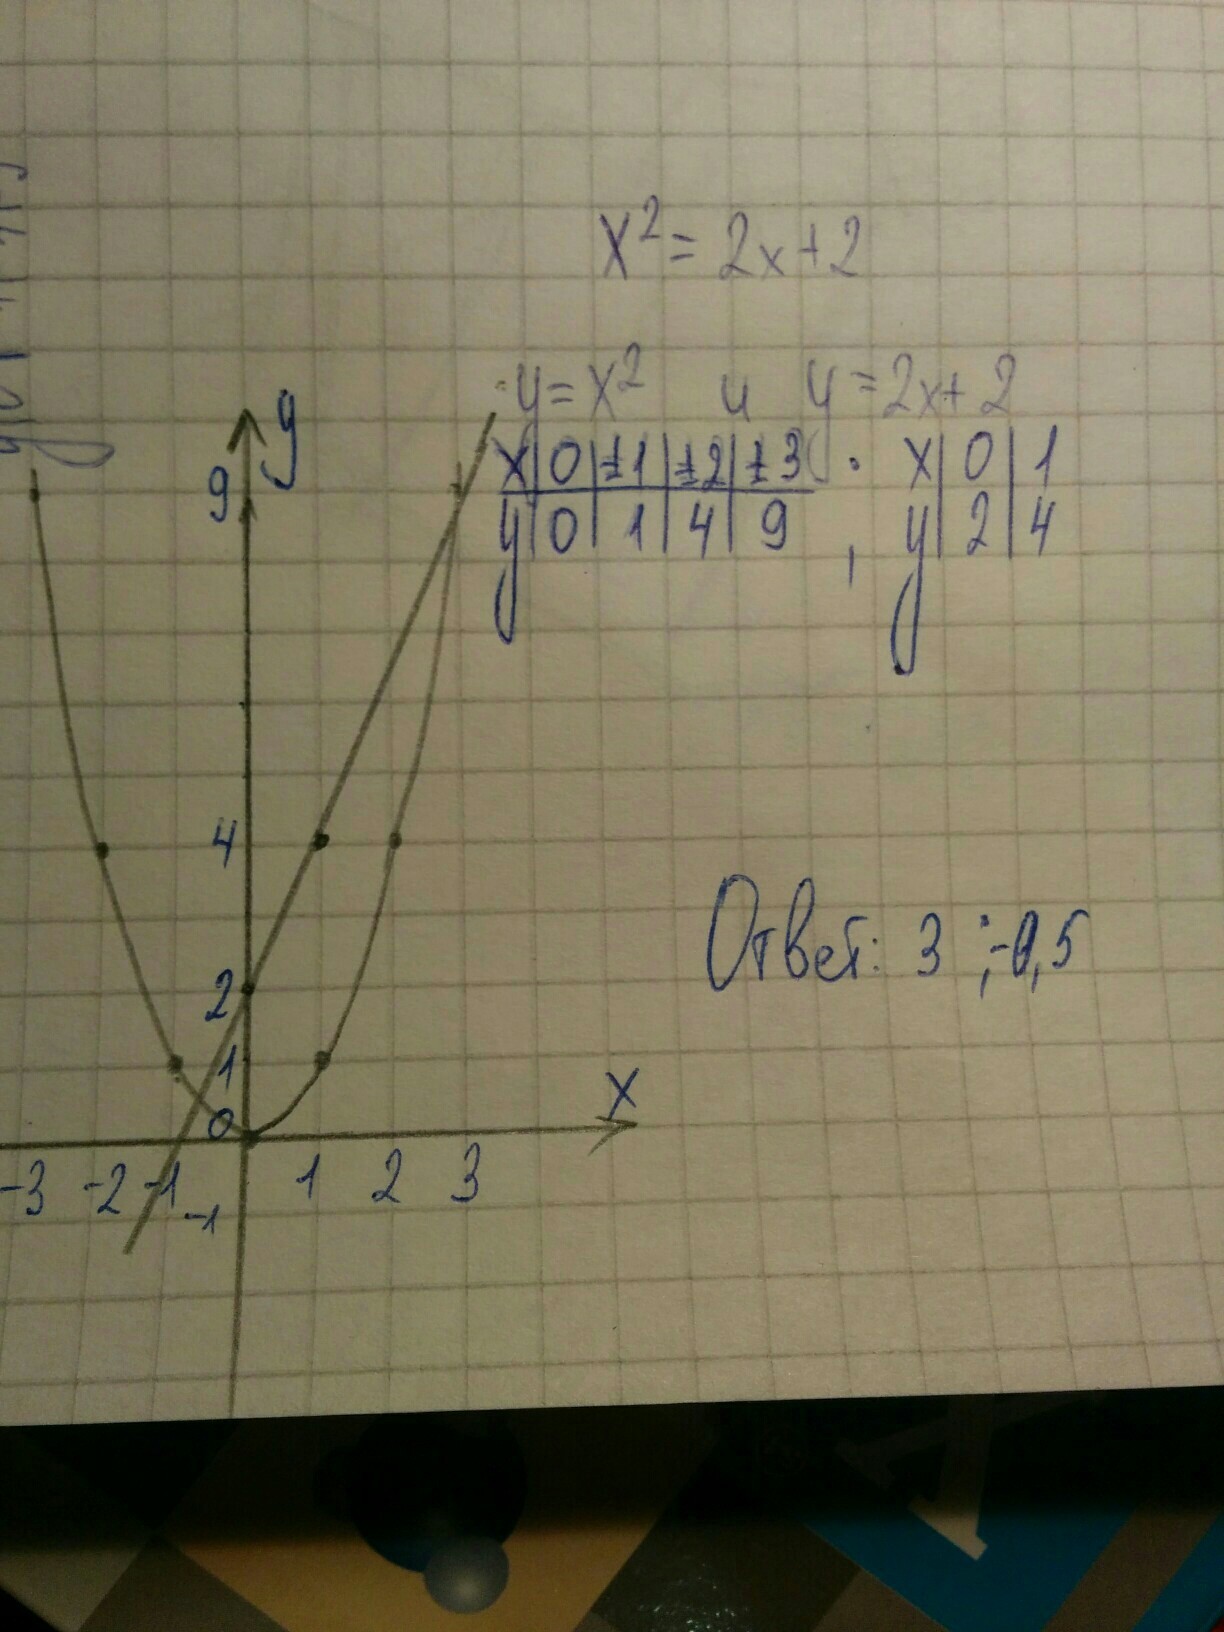 x² = 2x+2
y = x² и y = 2x+2
x | 0 | ±1 | ±2 | ±3 x | 0 | 1
y | 0 | 1 | 4 | 9 , y | 2 | 4
y
9
4
2
1
0
x
-3 -2 -1 1 2 3
-1
Ответ: 3 ; -0,5